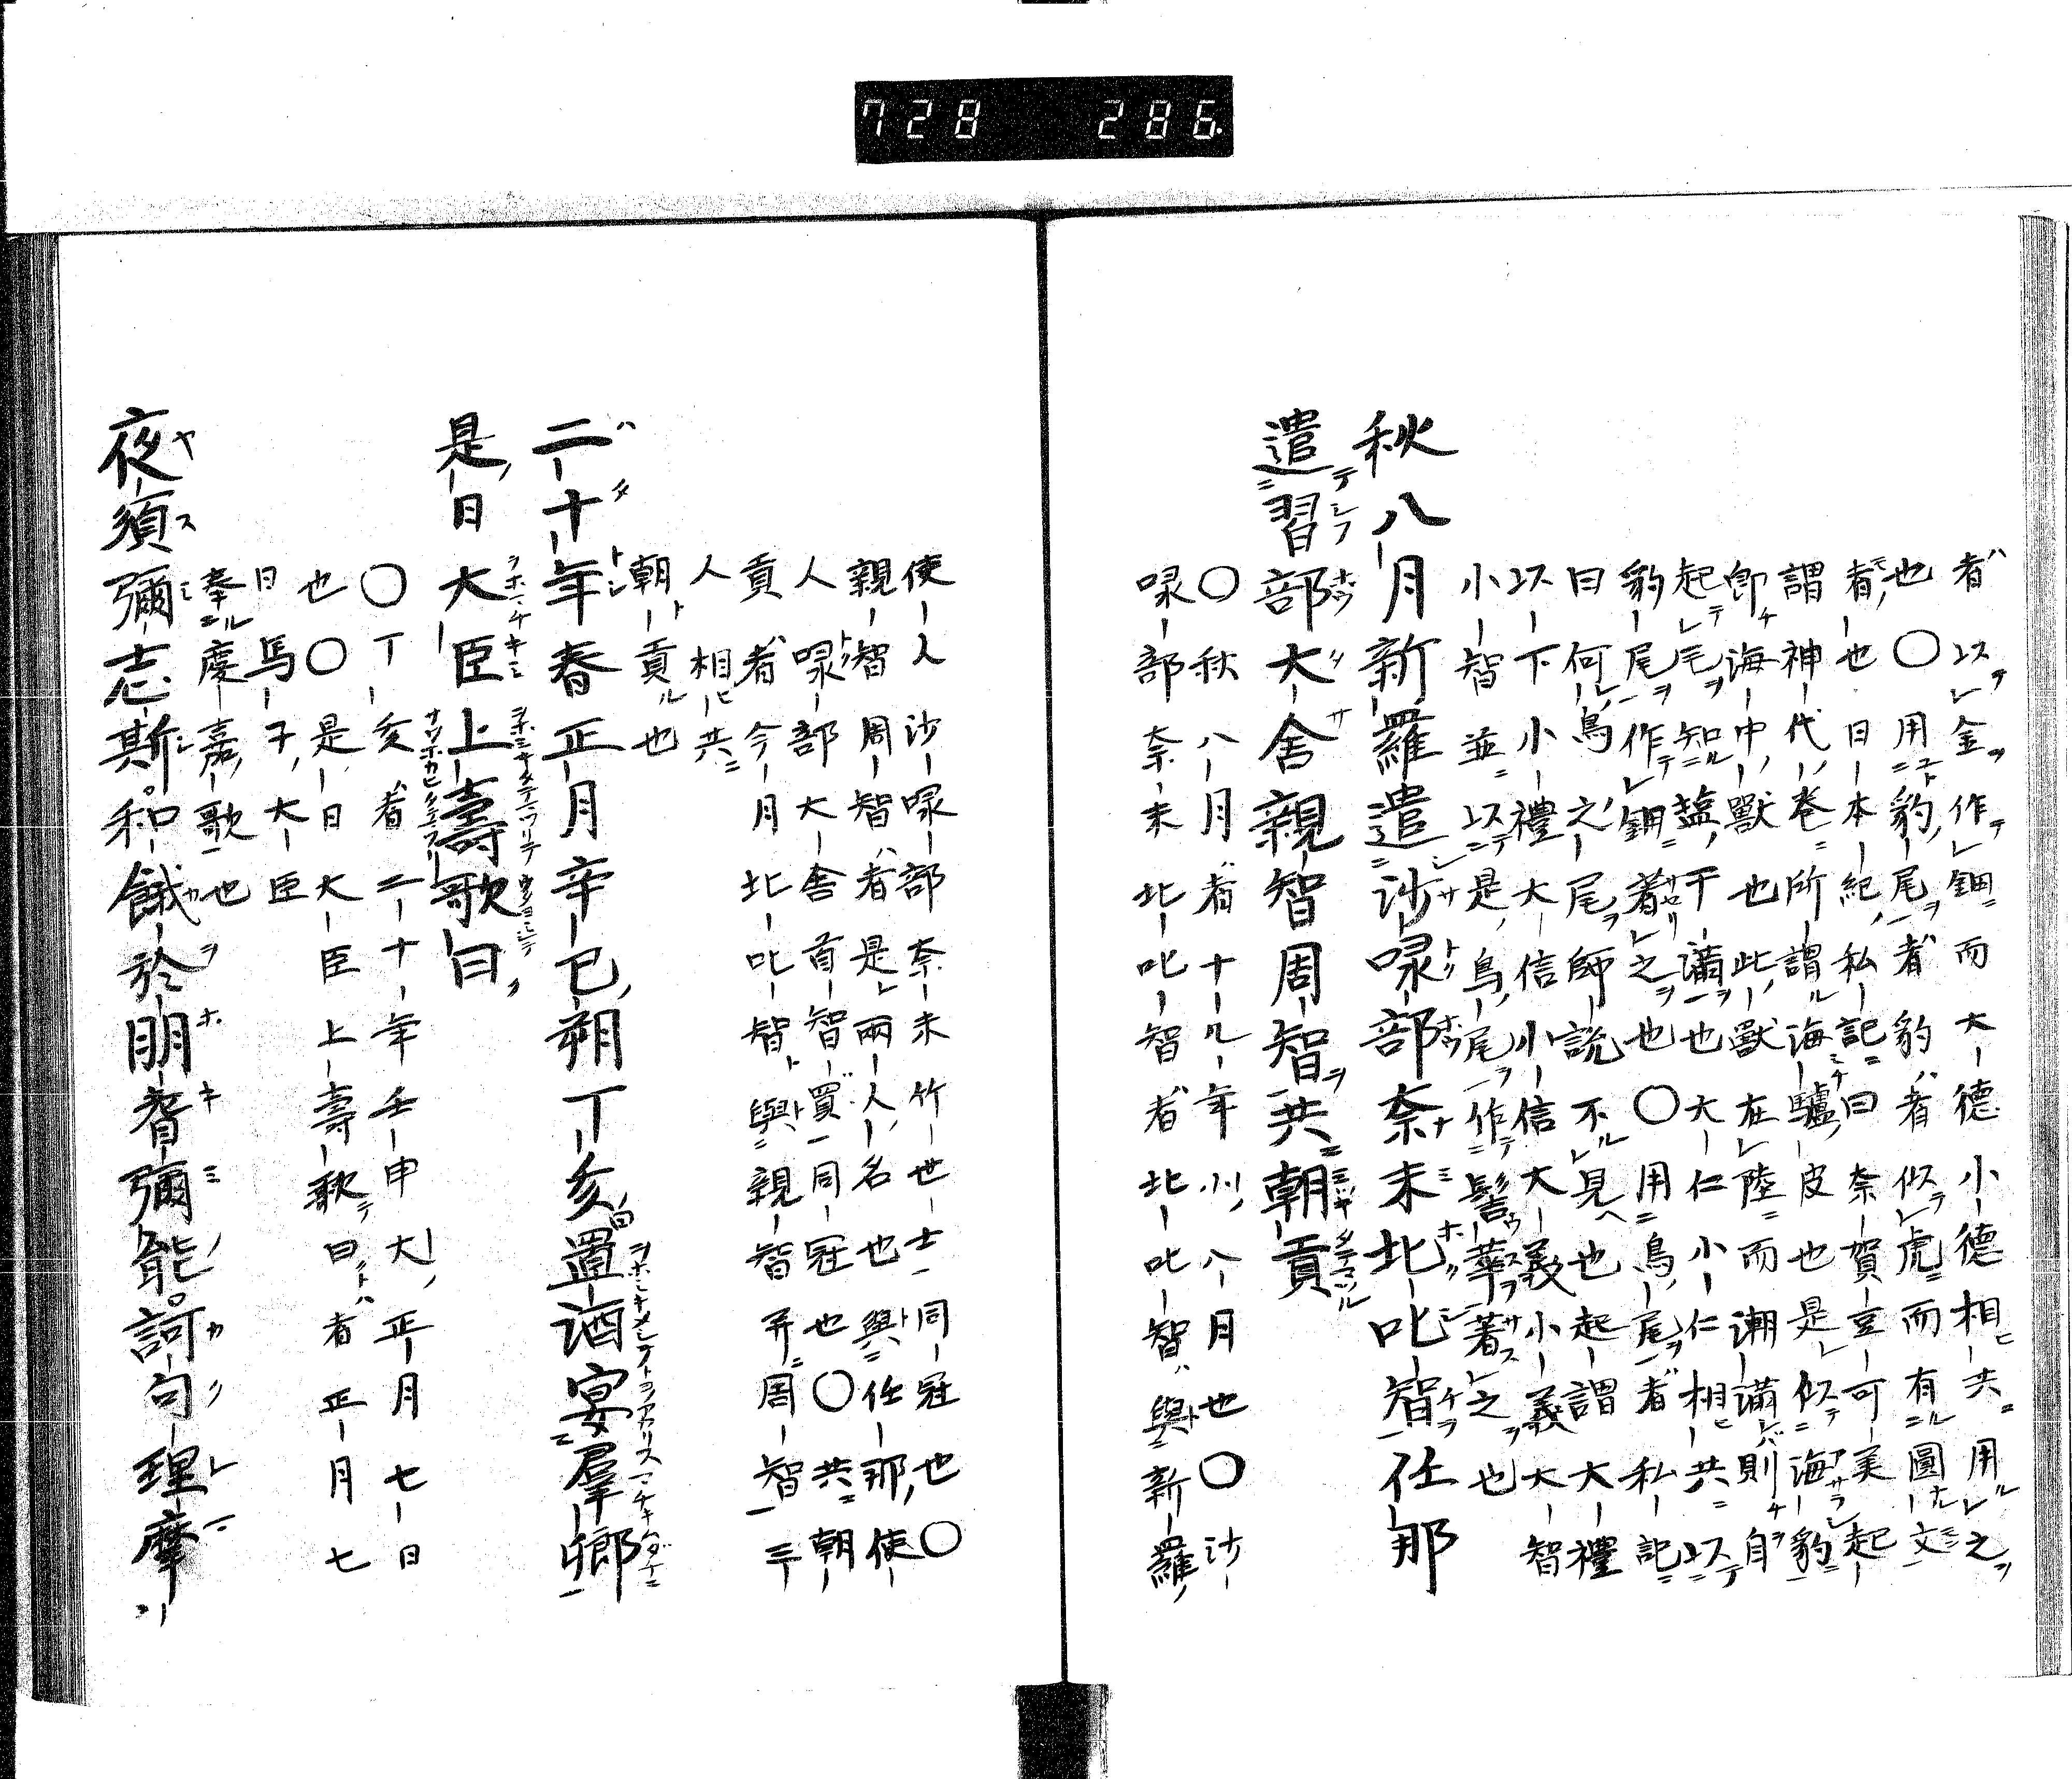 728 286
者以金作鈿而大德小德相共用之
也〇用豹尾者豹者似虎而有圓文
者也日本紀私記曰奈賀豆可美起
謂神代卷所謂海驢皮也是似海豹
即海中獸也此獸在陸而潮滿則自
起毛知鹽干滿也大仁小仁相共以
豹尾作鈿著之也〇用鳥尾者私記
曰何鳥之尾師說不見也起謂大禮
以下小禮大信小信大義小義大智
小智並以是鳥尾作髻華著之也
秋八月新羅遣沙㖨部奈末北叱智任那
遣習部大舍親智周智共朝貢
〇秋八月者十九年八月也〇沙
㖨部奈末北叱智者北叱智與新羅
使人沙㖨部奈末竹世士同冠也〇
親智周智者是兩人名也與任那使
人㖨部大舍首智買同冠也〇共朝
貢者今月北叱智與親智并周智三
人相共
朝貢也
二十年春正月辛巳朔丁亥置酒宴羣卿
是日大臣上壽歌曰
〇丁亥者二十年壬申大正月七日
也〇是日大臣上壽歌曰者正月七
日馬子大臣
奉慶嘉歌也
夜須彌志斯和餓於朋耆彌能訶句理摩